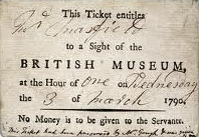 This Ticket entitles
to a Sight of the
BRITISH MUSEUM,
at the Hour of One on Wednesday
the 3 of March 1790.
No Money is to be given to the Servants.
This Ticket had been